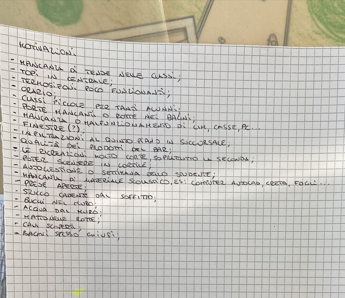 MOTIVAZIONI:
- MANCANZA DI TENDE NELLE CLASSI;
- TOPI IN CENTRALE;
- TERMOSIFONI POCO FUNZIONANTI;
- ORARIO;
- CLASSI PICCOLE PER TANTI ALUNNI;
- PORTE MANCANTI O ROTTE NEI BAGNI;
- MANCANZA O MALFUNZIONAMENTO DI LIM, CASSE, PC...
- FINESTRE (?);
- INFILTRAZIONI AL QUINTO PIANO IN SUCCURSALE;
- QUALITÀ DEI PRODOTTI DEL BAR;
- LE RICREAZIONI MOLTO CORTE, SOPRATTUTTO LA SECONDA;
- POTER SCENDERE IN CORTILE;
- AUTOGESTIONE O SETTIMANA DELLO STUDENTE;
- MANCANZA DI MATERIALE SCOLASTICO, ES: COMPUTER AUTOCAD, CARTA, FOGLI...
- PRESE APERTE;
- STUCCO CADENTE DAL SOFFITTO;
- BUCHI NEL MURO;
- ACQUA DAL MURO;
- MATTONELLE ROTTE;
- CAVI SCOPERTI;
- BAGNI SPESSO CHIUSI;